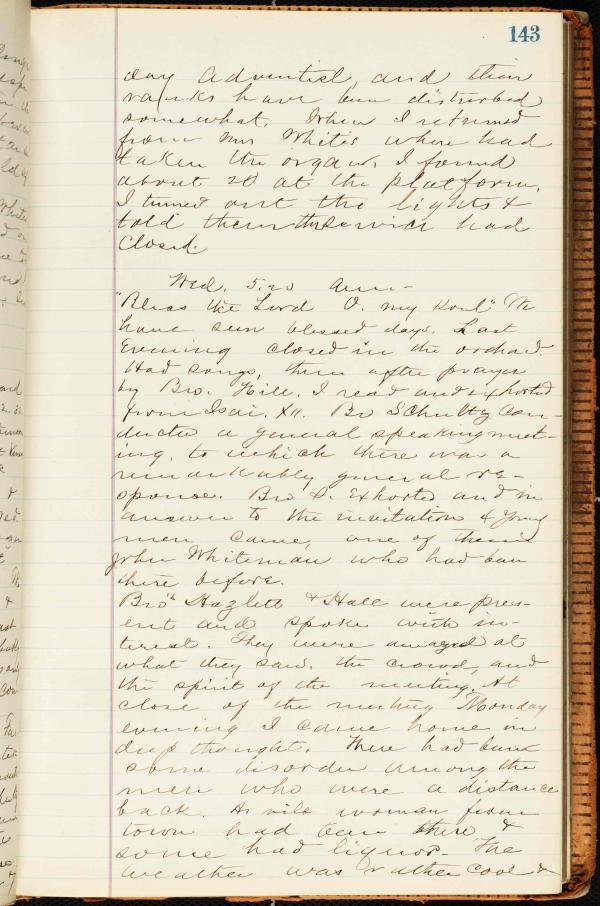 143
day Adventist, and their
ranks have been disturbed
somewhat. When I returned
from Mrs White's where had
taken the organ, I found
about 20 at the platform.
I turned out the lights &
told them the service had
closed.
Wed. 5:20 Am-
"Bless the Lord O. my soul" We
have seen blessed days. Last
Evening closed in the orchard.
Had songs, then after prayer
by Bro. Hill. I read and exhorted
from Isai. XII. Bro Schultz con-
ducted a general speaking meet-
ing, to which there was a
remarkably general re-
sponse. Bro S. Exhorted and in
answer to the invitation 4 young
men came, one of them
John Whiteman who had been
there before.
Bros Hazlett & Hall were pres-
ent and spoke with in-
terest. They were amazed at
what they saw. the crowd, and
the spirit of the meeting. At
close of the meeting Monday
evening I came home in
deep thought. There had been
some disorder among the
men who were a distance
back. A vile woman from
town had been there &
some had liquor. The
weather was rather cool &